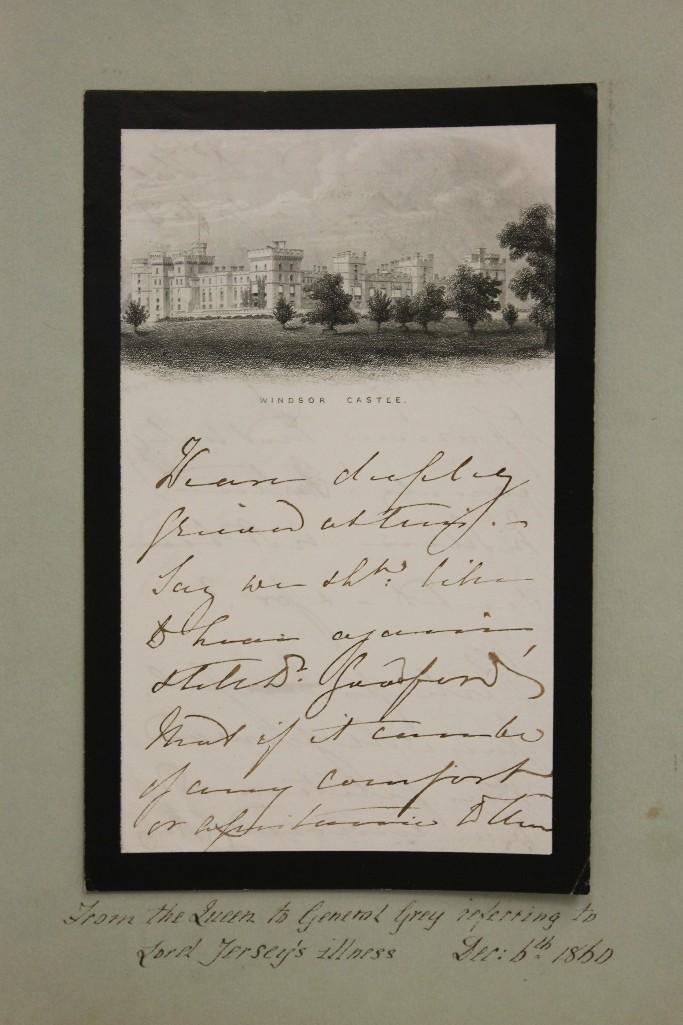 WINDSOR CASTLE.
deeply
grieved at this. -
Say we shld. like
to hear again
Dr.
that if it can be
of any comfort
or assistance to
From the Queen to General Grey referring to
Lord Jersey's illness Dec: 6th 1860